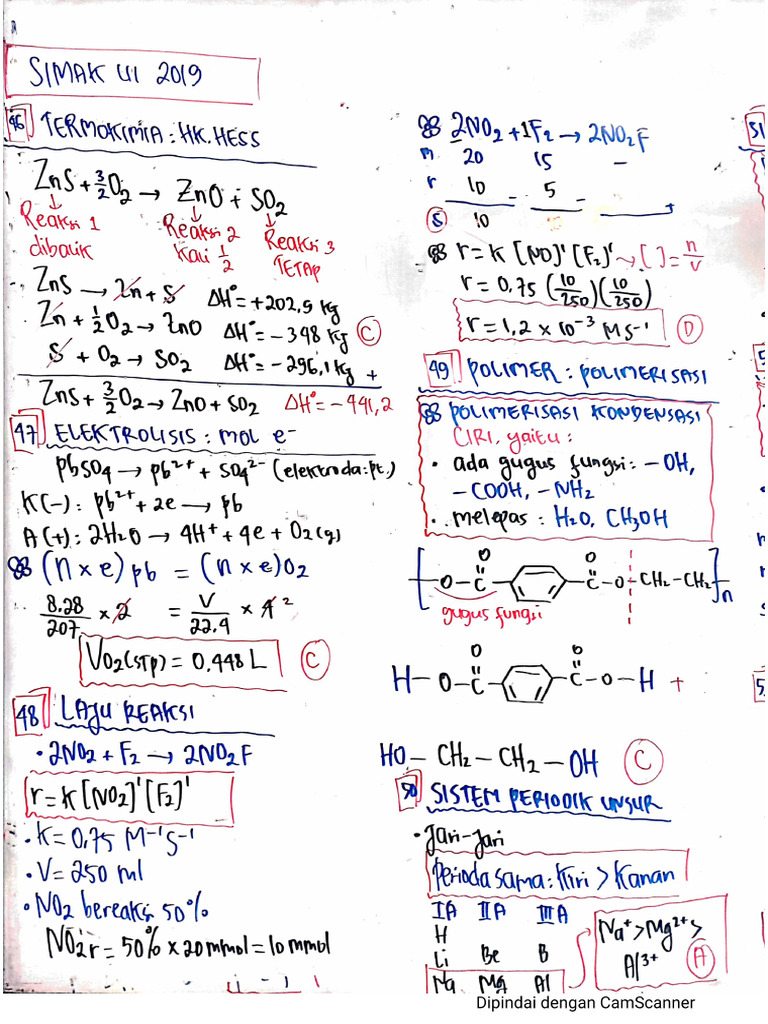 SIMAK UI 2019
46 TERMOKIMIA : HK. HESS
ZnS + 3/2 O2 → ZnO + SO2
Reaksi 1 dibalik
Reaksi 2 kali 1/2
Reaksi 3 TETAP
ZnS → Zn + S ΔH° = +202,9 kg
Zn + 1/2 O2 → ZnO ΔH° = -348 kg
S + O2 → SO2 ΔH° = -296,1 kg +
C
ZnS + 3/2 O2 → ZnO + SO2 ΔH° = -441,2
47 ELEKTROLISIS : MOL e-
PbSO4 → Pb2+ + SO4 2- (elektroda: pt.)
K(-) : Pb2+ + 2e → Pb
A(+) : 2H2O → 4H+ + 4e + O2(g)
(n x e) pb = (n x e) O2
8.28/207 x 2 = V/22.4 x 4 2
VO2(STP) = 0,448 L
C
48 LAJU REAKSI
• 2NO2 + F2 → 2NO2F
r = k [NO2]¹ [F2]¹
• K = 0,75 M-1 s-1
• V = 250 ml
• NO2 bereaksi 50%
NO2 r = 50% x 20 mmol = 10 mmol
2NO2 + 1F2 → 2NO2F
m 20 15 -
r 10 - 5 - +
S 10
r = k [NO]¹ [F2]¹ → [ ] = n/v
r = 0,75 (10/250) (10/250)
r = 1,2 x 10-3 M s-1
D
49 POLIMER : POLIMERISASI
POLIMERISASI KONDENSASI
CIRI, yaitu :
• ada gugus fungsi : -OH,
-COOH, -NH2
• melepas : H2O, CH3OH
O O
[O - C - C - O - CH2 - CH2]n
gugus fungsi
O O
H - O - C - C - O - H +
HO - CH2 - CH2 - OH
C
50 SISTEM PERIODIK UNSUR
• Jari-Jari
Perioda sama : Kiri > Kanan
IA IIA IIIA
H
Li Be B
Na Mg Al
Na+ > Mg2+ >
Al3+
A
Dipindai dengan CamScanner